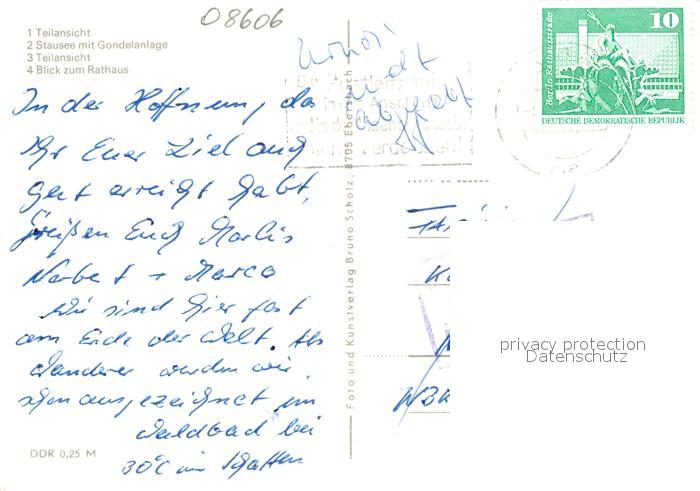 08606
1 Teilansicht
2 Stausee mit Gondelanlage
3 Teilansicht
4 Blick zum Rathaus
10
Berlin-Rathausstraße
DEUTSCHE DEMOKRATISCHE REPUBLIK
In der Hoffnung, da
Ihr Euer Ziel auch
gut erreicht habt,
grüßen Euch Marlis
Norbert + Marco
Wir sind hier fast
am Ende der Welt. Als
Wanderer wurden wir
schon ausgezeichnet im
Waldbad bei
30°C im Schatten
DDR 0,25 M
Foto und Kunstverlag Bruno Scholz, 8705 Ebersbach
privacy protection
Datenschutz